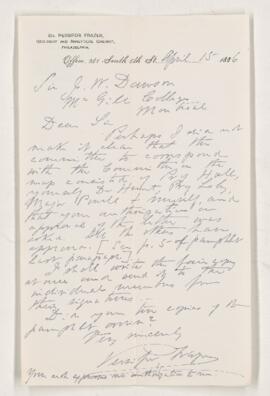 DR. PERSIFOR FRAZER,
GEOLOGIST AND ANALYTICAL CHEMIST,
PHILADELPHIA.
Office, 201 South 5th St. April 15 1886
Sir J. W. Dawson
McGill College
Montreal
Dear Sir
Perhaps I did not
make it clear that the
committee to correspond
with the Committee on the
map consisted of Prof Hall,
yourself, Dr Hunt, Prof Lesley,
Major Powell & myself, and
that your
approval of the letter was
asked. All the others have
approved. [See p. 5 of pamphlet
last paragraph]
I shall write the
at once and send it to the
individual members for
their signatures.
Did you two copies of the
pamphlet
Very sincerely
Persifor Frazer
Your